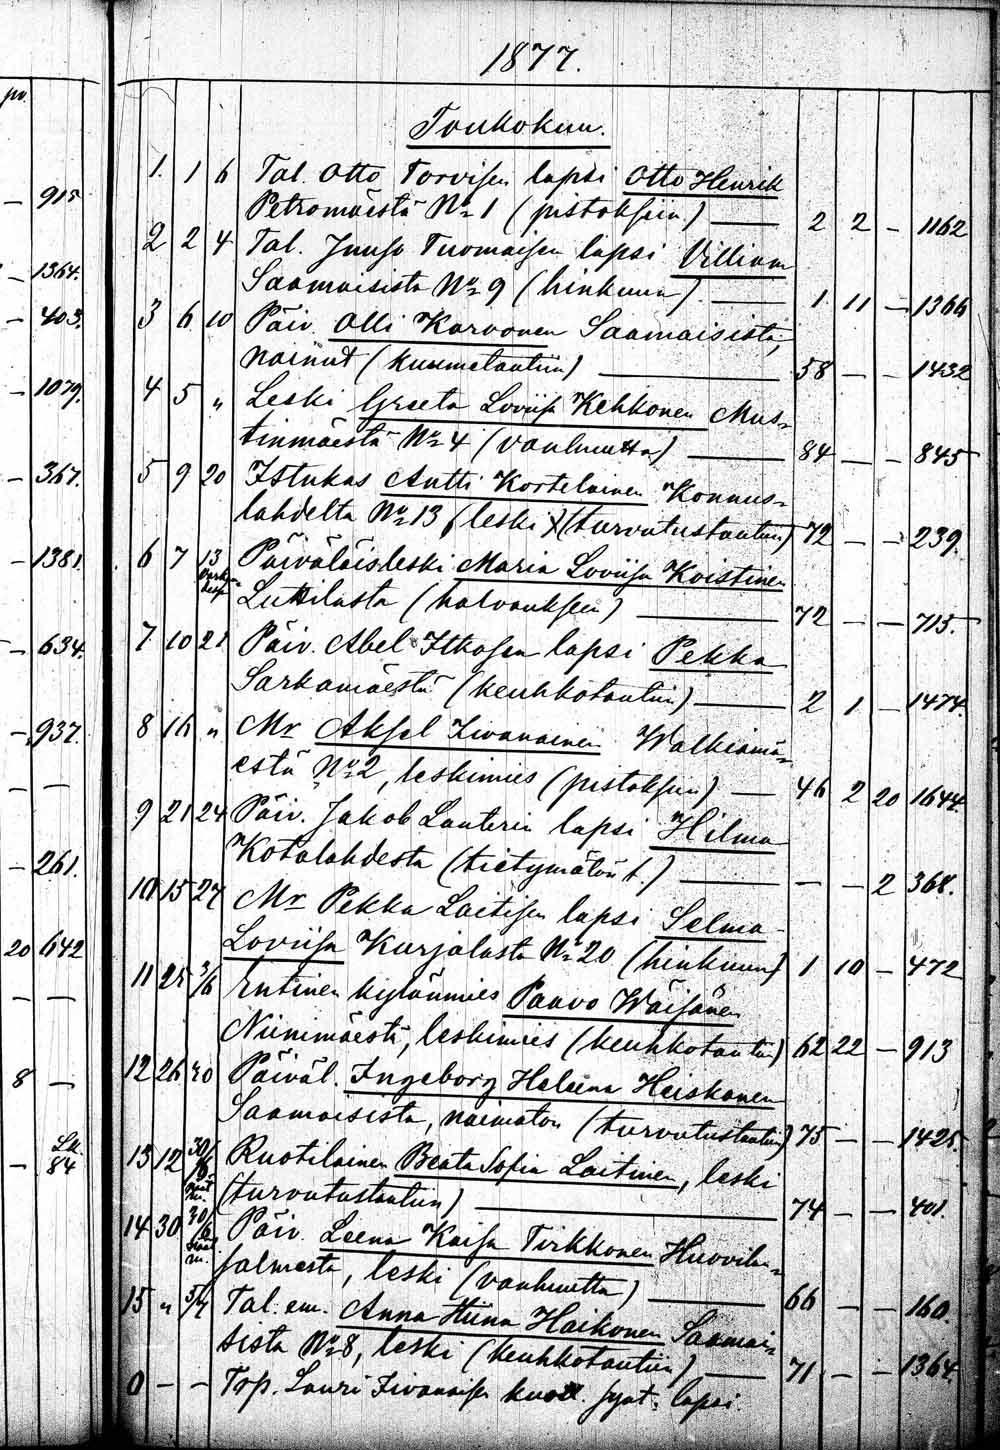 1877.
pv.
Toukokuu.
1. 1 6 Tal. Otto Torvisen lapsi Otto Henrik
— 915
Petromäestä No 1 (pistoksiin) — 2 2 — 1162
2 2 4 Tal. Juuso Tuomaisen lapsi Villiam
— 1364.
Saamaisista No 9 (hinkuun). — 1 11 — 1366
— 403. 3 6 10 Päiv. Olli Karvonen Saamaisista,
nainut (kuumetautiin) — 58 — — 1432
— 1079. 4 5 „ Leski Greeta Loviisa Kehkonen Mus-
tinmäestä No 4 (vanhuutta) — 84 — — 845
— 367. 5 9 20 Istukas Antti Kortelainen Konnus-
lahdelta No 13 (leski) (turvotustautiin) 72 — — 239.
— 1381. 6 7 13 Päiväläisleski Maria Loviisa Koistinen
Luttilasta (halvaukseen) — 72 — — 713.
— 634. 7 10 21 Päiv. Abel Itkosen lapsi Pekka
Sarkamäestä (keuhkotautiin) — 2 1 — 1474.
— 937. 8 16 „ Mr Aksel Iivanainen Walkiamä-
estä No 2, leskimies (pistoksiin) — 46 2 20 1644.
— —
9 21 24 Päiv. Jakob Lauterin lapsi Hilma
— 261. Kotalahdesta (tietymätön t.) — — — 2 368.
10 15 27 Mr Pekka Laitisen lapsi Selma
20 642 Loviisa Kurjalasta No 20 (hinkuun) 1 10 — 472
— — 11 25 3/6 Entinen kylänmies Paavo Wäisänen
Niinimäestä, leskimies (keuhkotautiin) 62 22 — 913
8 — 12 26 30 Päiväl. Ingeborg Heleena Heiskanen
Saamaisista, naimaton (turvotustautiin) 75 — — 1425.
— Lk. 84 13 12 30/6 Ruotilainen Beata Sofia Laitinen, leski
(turvotustautiin) — 74 — — 401.
14 30 30/6 Päiv. Leena Kaisa Tirkkonen Huovila-
salmesta, leski (vanhuutta) — 66 — — 160.
15 „ 5/7 Tal. em. Anna Stiina Haikonen Saamai-
sista No 8, leski (keuhkotautiin) — 71 — — 1364.
0 — — Torp. Lauri Iivanaisen kuoll. synt. lapsi.